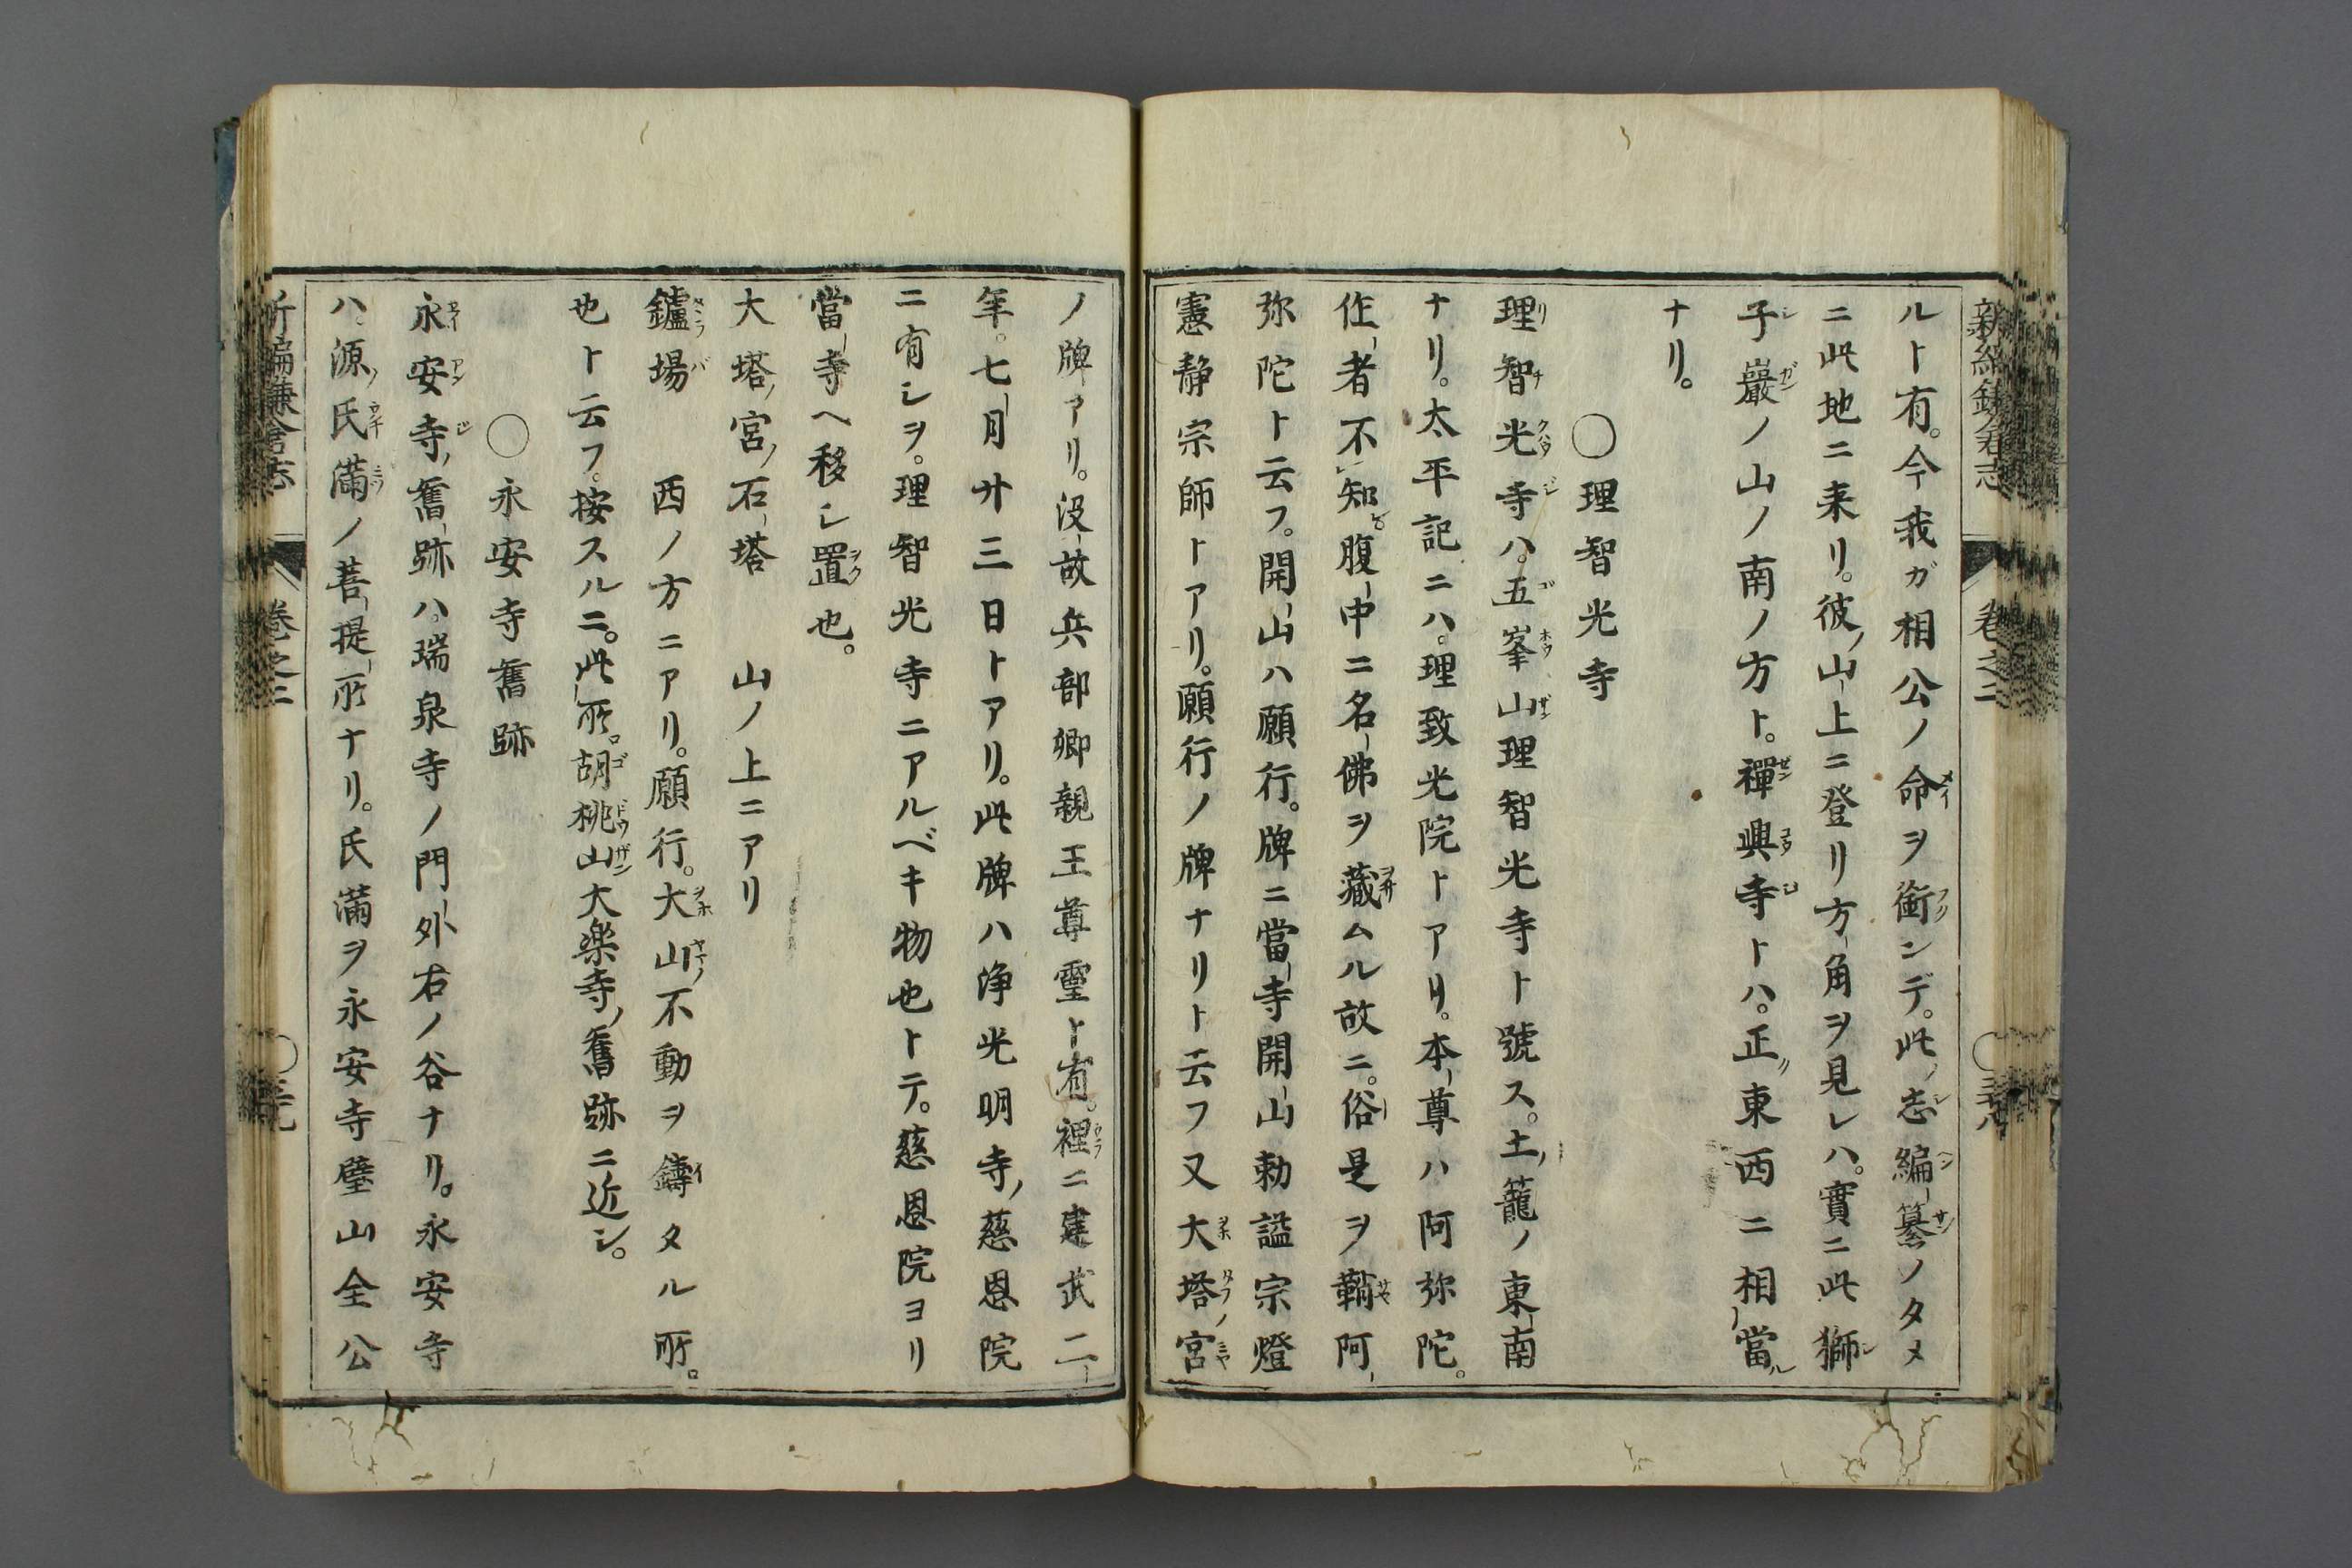 新編鎌倉志　卷之二
ルト有。今我ガ相公ノ命ヲ銜ンデ。此志編纂ノタメ
ニ此地ニ来リ。彼山上ニ登リ方角ヲ見レハ。實ニ此獅
子巖ノ山ノ南ノ方ト。禪興寺トハ。正東西ニ相當
ナリ。
〇理智光寺
理智光寺ハ。五峯山理智光寺ト號ス。土籠ノ東南
ナリ。太平記ニハ。理致光院トアリ。本尊ハ阿弥陀。
作者不知腹中ニ名佛ヲ藏ムル故ニ。俗是ヲ鞘阿
弥陀ト云フ。開山ハ願行。牌ニ當寺開山勅謚宗燈
憲静宗師トアリ。願行ノ牌ナリト云フ又大塔宮
ノ牌アリ。没故兵部卿親王尊霊ト有。裡ニ建武二
年。七月廿三日トアリ。此牌ハ浄光明寺慈恩院
ニ有シヲ。理智光寺ニアルベキ物也トテ。慈恩院ヨリ
當寺ヘ移シ置也。
大塔宮石塔　山ノ上ニアリ
鑪場　西ノ方ニアリ。願行。大山不動ヲ鑄タル所。
也ト云フ。按スルニ。此所。胡桃山大楽寺舊跡ニ近シ。
〇永安寺舊跡
永安寺舊跡ハ瑞泉寺ノ門外右ノ谷ナリ。永安寺
ハ。源氏滿ノ菩提所ナリ。氏滿ヲ永安寺璧山全公
新編鎌倉志　卷之二　〇三十九